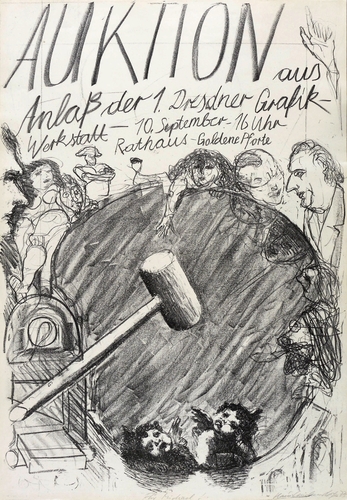 AUKTION aus
Anlaß der 1. Dresdner Grafik-
Werkstatt – 10. September – 16 Uhr
Rathaus – Goldene Pforte